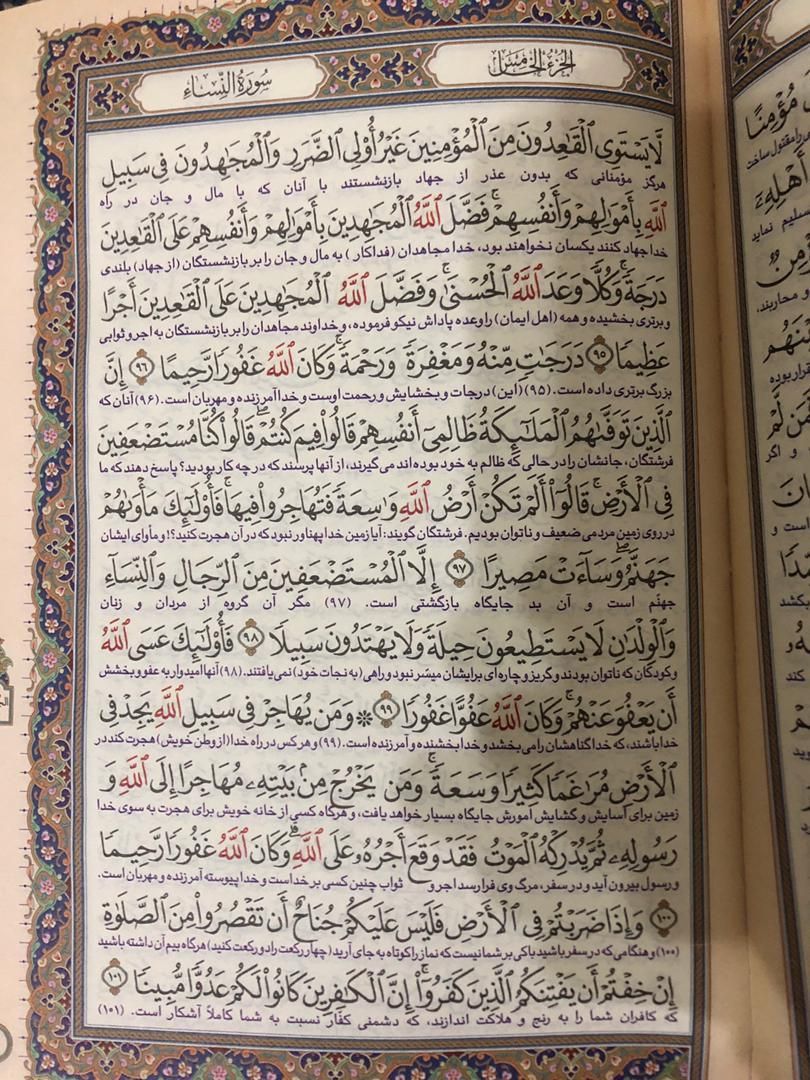 الجزء الخامس
سورة النساء
لَّا يَسْتَوِى ٱلْقَٰعِدُونَ مِنَ ٱلْمُؤْمِنِينَ غَيْرُ أُو۟لِى ٱلضَّرَرِ وَٱلْمُجَٰهِدُونَ فِى سَبِيلِ
هرگز مؤمنانی که بدون عذر از جهاد بازنشستند با آنان که با مال و جان در راه
ٱللَّهِ بِأَمْوَٰلِهِمْ وَأَنفُسِهِمْ ۚ فَضَّلَ ٱللَّهُ ٱلْمُجَٰهِدِينَ بِأَمْوَٰلِهِمْ وَأَنفُسِهِمْ عَلَى ٱلْقَٰعِدِينَ
خدا جهاد کنند یکسان نخواهند بود، خدا مجاهدان (فداکار) به مال و جان را بر بازنشستگان (از جهاد) بلندی
دَرَجَةً ۚ وَكُلًّا وَعَدَ ٱللَّهُ ٱلْحُسْنَىٰ ۚ وَفَضَّلَ ٱللَّهُ ٱلْمُجَٰهِدِينَ عَلَى ٱلْقَٰعِدِينَ أَجْرًا
و برتری بخشیده و همه (اهل ایمان) را وعده پاداش نیکو فرموده، و خداوند مجاهدان را بر بازنشستگان به اجر و ثوابی
عَظِيمًا ۹۵ دَرَجَٰتٍ مِّنْهُ وَمَغْفِرَةً وَرَحْمَةً ۚ وَكَانَ ٱللَّهُ غَفُورًا رَّحِيمًا ۹۶ إِنَّ
بزرگ برتری داده است. (۹۵) (این) درجات و بخشایش و رحمت اوست و خدا آمرزنده و مهربان است. (۹۶) آنان که
ٱلَّذِينَ تَوَفَّىٰهُمُ ٱلْمَلَٰٓئِكَةُ ظَالِمِىٓ أَنفُسِهِمْ قَالُوا۟ فِيمَ كُنتُمْ ۖ قَالُوا۟ كُنَّا مُسْتَضْعَفِينَ
فرشتگان، جانشان را در حالی که ظالم به خود بوده‌اند می‌گیرند، از آنها پرسند که در چه کار بودید؟ پاسخ دهند که ما
فِى ٱلْأَرْضِ ۚ قَالُوٓا۟ أَلَمْ تَكُنْ أَرْضُ ٱللَّهِ وَٰسِعَةً فَتُهَاجِرُوا۟ فِيهَا ۚ فَأُو۟لَٰٓئِكَ مَأْوَىٰهُمْ
در روی زمین مردمی ضعیف و ناتوان بودیم. فرشتگان گویند: آیا زمین خدا پهناور نبود که در آن هجرت کنید؟! و مأوای ایشان
جَهَنَّمُ ۖ وَسَآءَتْ مَصِيرًا ۹۷ إِلَّا ٱلْمُسْتَضْعَفِينَ مِنَ ٱلرِّجَالِ وَٱلنِّسَآءِ
جهنّم است و آن بد جایگاه بازگشتی است. (۹۷) مگر آن گروه از مردان و زنان
وَٱلْوِلْدَٰنِ لَا يَسْتَطِيعُونَ حِيلَةً وَلَا يَهْتَدُونَ سَبِيلًا ۹۸ فَأُو۟لَٰٓئِكَ عَسَى ٱللَّهُ
و کودکان که ناتوان بودند و گریز و چاره‌ای برایشان میسّر نبود و راهی (به نجات خود) نمی‌یافتند. (۹۸) آنها امیدوار به عفو و بخشش
أَن يَعْفُوَ عَنْهُمْ ۚ وَكَانَ ٱللَّهُ عَفُوًّا غَفُورًا ۹۹ ۞ وَمَن يُهَاجِرْ فِى سَبِيلِ ٱللَّهِ يَجِدْ فِى
خدا باشند، که خدا گناهشان را می‌بخشد و خدا بخشنده و آمرزنده است. (۹۹) و هر کس در راه خدا (از وطن خویش) هجرت کند در
ٱلْأَرْضِ مُرَٰغَمًا كَثِيرًا وَسَعَةً ۚ وَمَن يَخْرُجْ مِنۢ بَيْتِهِۦ مُهَاجِرًا إِلَى ٱللَّهِ وَ
زمین برای آسایش و گشایش امورش جایگاه بسیار خواهد یافت، و هرگاه کسی از خانه خویش برای هجرت به سوی خدا
رَسُولِهِۦ ثُمَّ يُدْرِكْهُ ٱلْمَوْتُ فَقَدْ وَقَعَ أَجْرُهُۥ عَلَى ٱللَّهِ ۗ وَكَانَ ٱللَّهُ غَفُورًا رَّحِيمًا
و رسول بیرون آید و در سفر، مرگ وی فرا رسد اجر و ثواب چنین کسی بر خداست و خدا پیوسته آمرزنده و مهربان است.
۱۰۰ وَإِذَا ضَرَبْتُمْ فِى ٱلْأَرْضِ فَلَيْسَ عَلَيْكُمْ جُنَاحٌ أَن تَقْصُرُوا۟ مِنَ ٱلصَّلَوٰةِ
(۱۰۰) و هنگامی که در سفر باشید باکی بر شما نیست که نماز را کوتاه به جای آرید (چهار رکعت را دو رکعت کنید) هرگاه بیم آن داشته باشید
إِنْ خِفْتُمْ أَن يَفْتِنَكُمُ ٱلَّذِينَ كَفَرُوٓا۟ ۚ إِنَّ ٱلْكَٰفِرِينَ كَانُوا۟ لَكُمْ عَدُوًّا مُّبِينًا ۱۰۱
که کافران شما را به رنج و هلاکت اندازند، که دشمنی کفّار نسبت به شما کاملاً آشکار است. (۱۰۱)